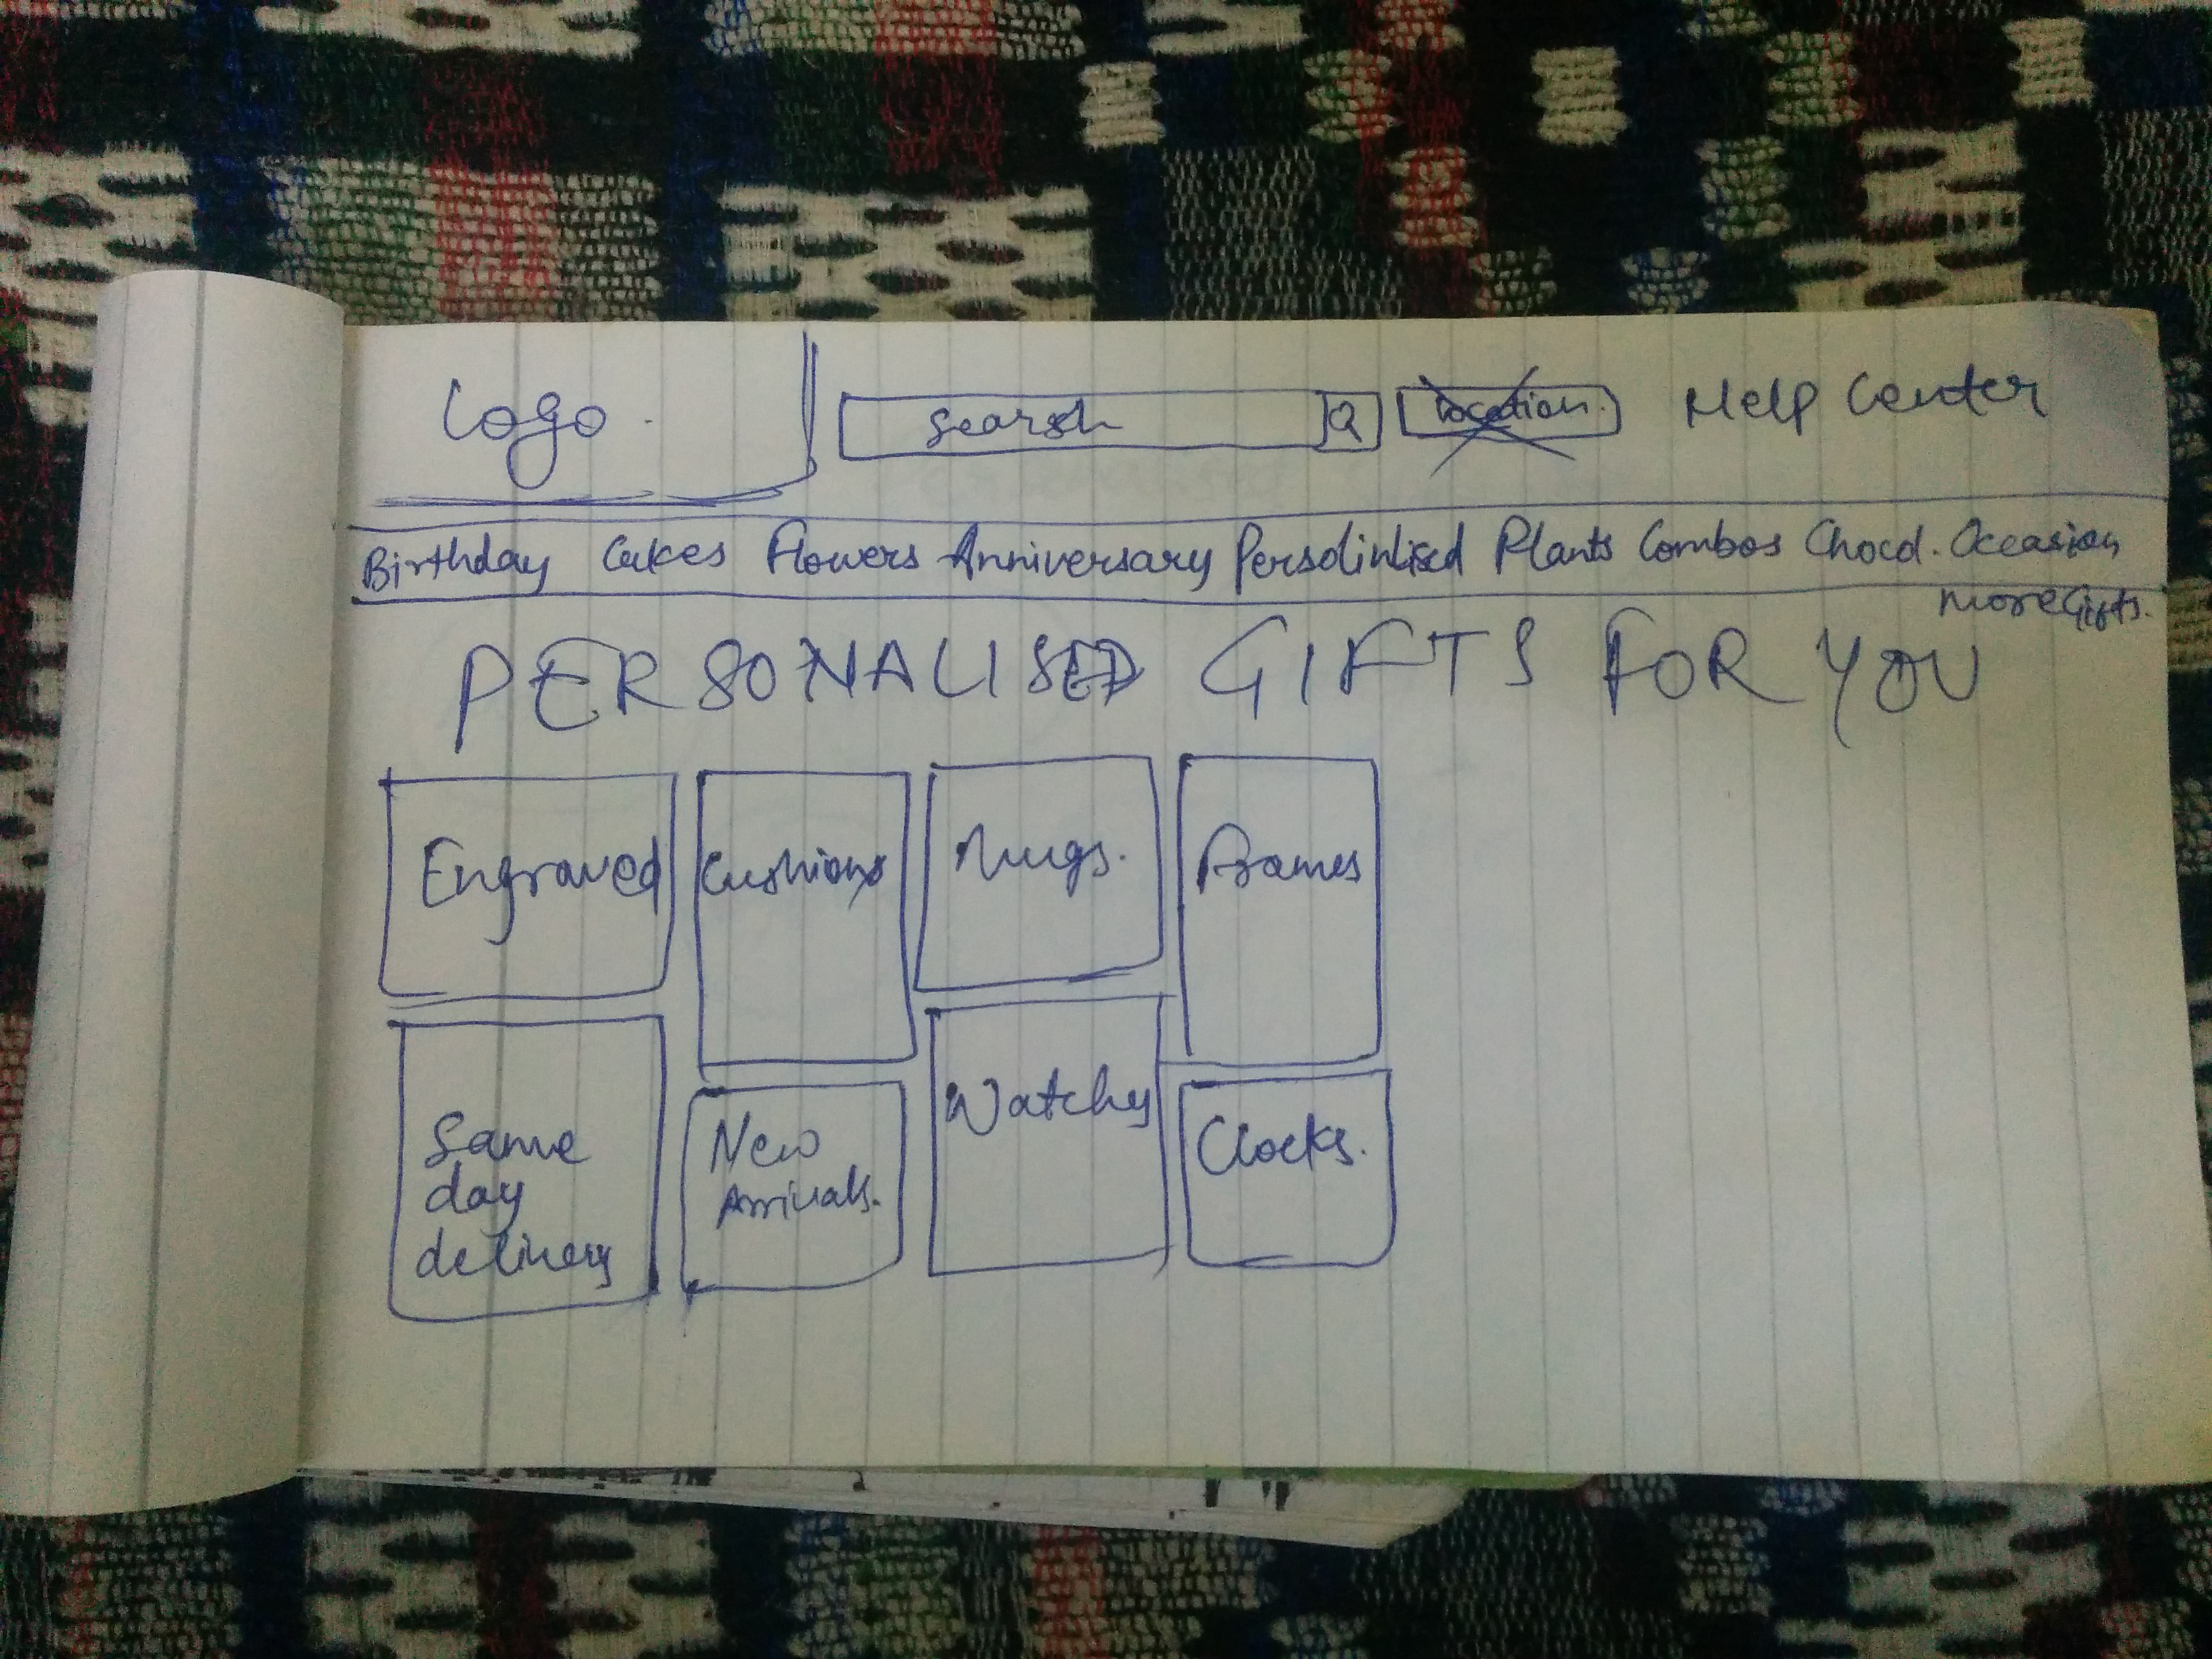 Logo.
Search
Location.
Help Center
Birthday Cakes Flowers Anniversary Persolinlised Plants Combos Chocol. Occasion
More Gifts.
PERSONALISED GIFTS FOR YOU
Engraved
Cushions
Mugs.
Frames
Same
day
delivery
New
Arrivals.
Watches
Clocks.